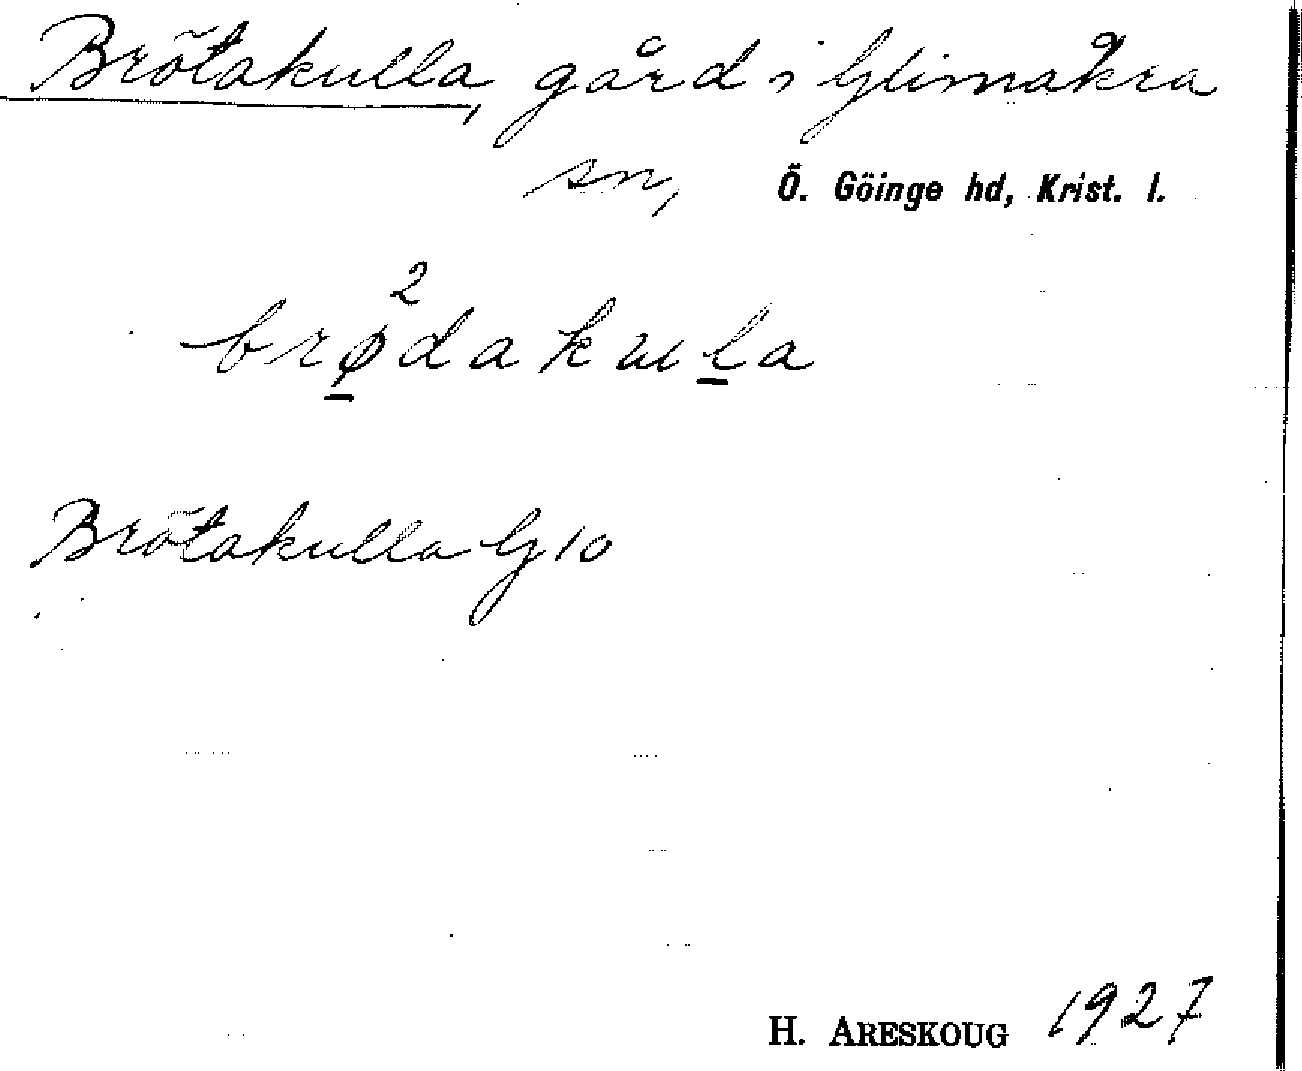 Brötakulla, gård i Glimåkra
sn, Ö. Göinge hd, Krist. l.
2
brø̱dakuḻa
Brötakulla G 10
H. ARESKOUG 1927